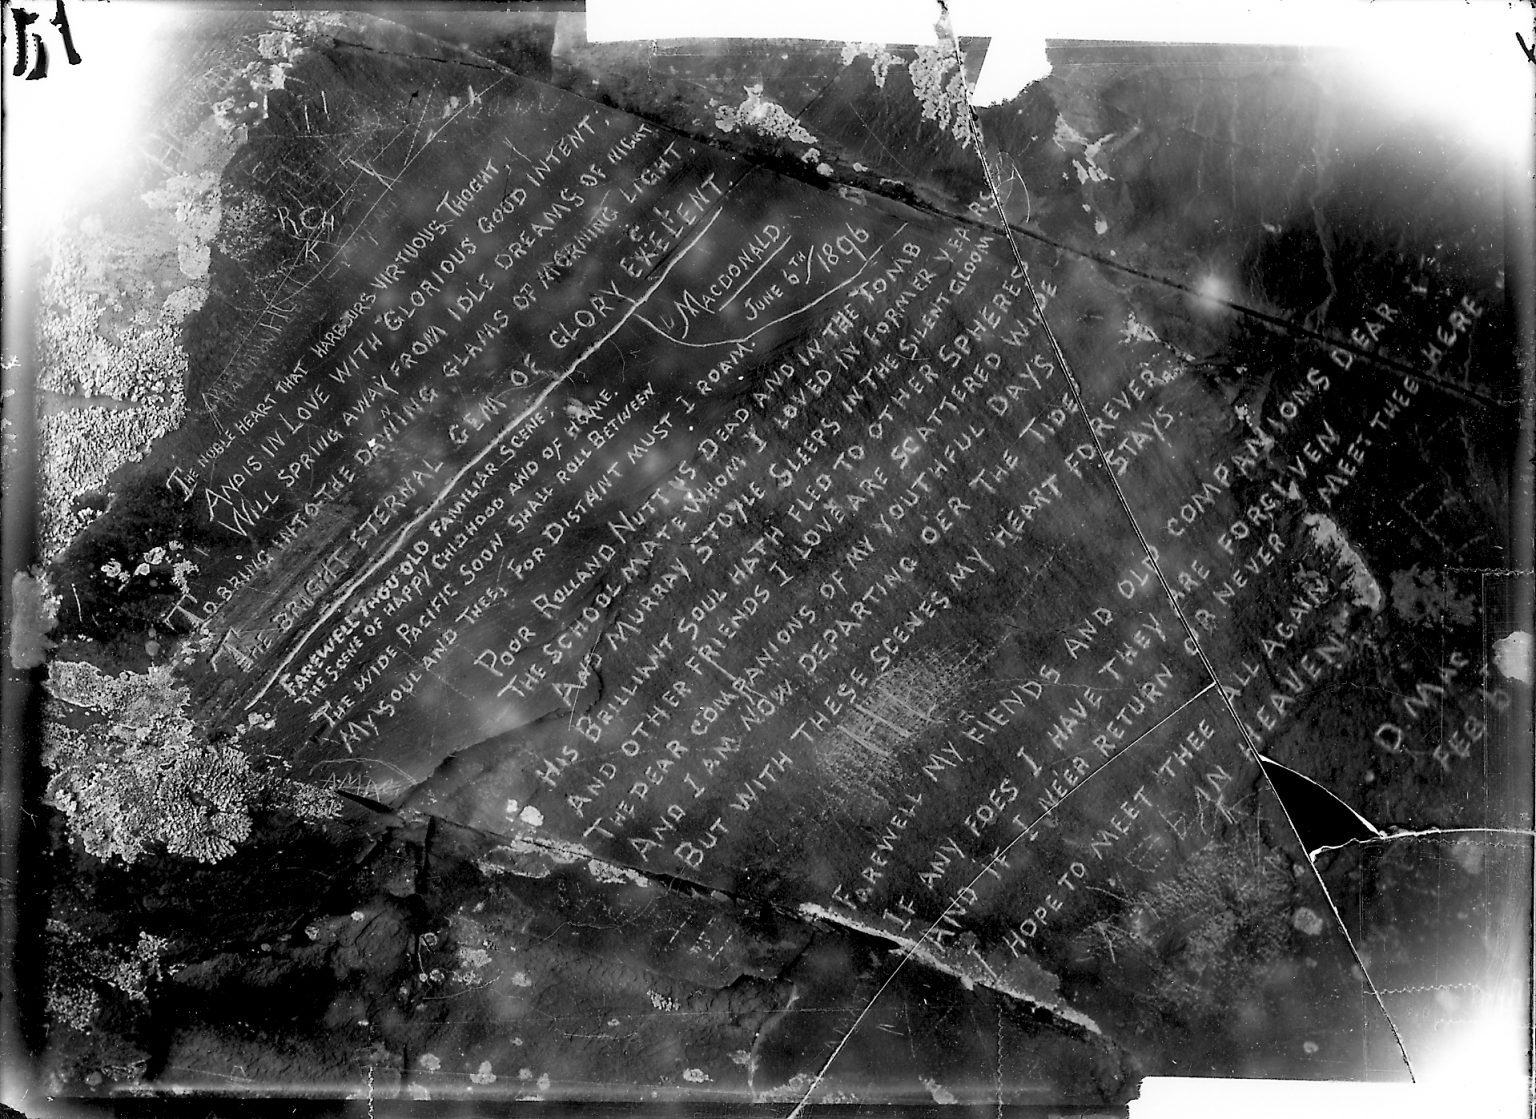 The noble heart that harbours virtuous thoght,
And is in Love with Glorious good intent.
Will spring away from idle dreams of night
To bring into the dawning glaims of morning light.
The bright eternal gem of glory exelent.
Macdonald.
June 6th/1896
Farewell thou old familiar scene;
The scene of happy childhood and of home.
The wide Pacific soon shall roll between
My soul and thee; for distant must I roam.
Poor Rolland Nutt us dead and in the tomb
The schoolmate whom I loved in former years
And Murray Stoyle sleeps in the silent gloom
His brilliant soul hath fled to other spheres
And other friends I love are scattered wide
The dear companions of my youthful days
And I am now departing oer the tide
But with these scenes my heart forever
stays.
Farewell my fiends and old companions dear
If any foes I have they are forgiven
And if I neer return or never meet thee here
I hope to meet thee all again
in heaven
D Mac
Feb 6
R.C.H
K